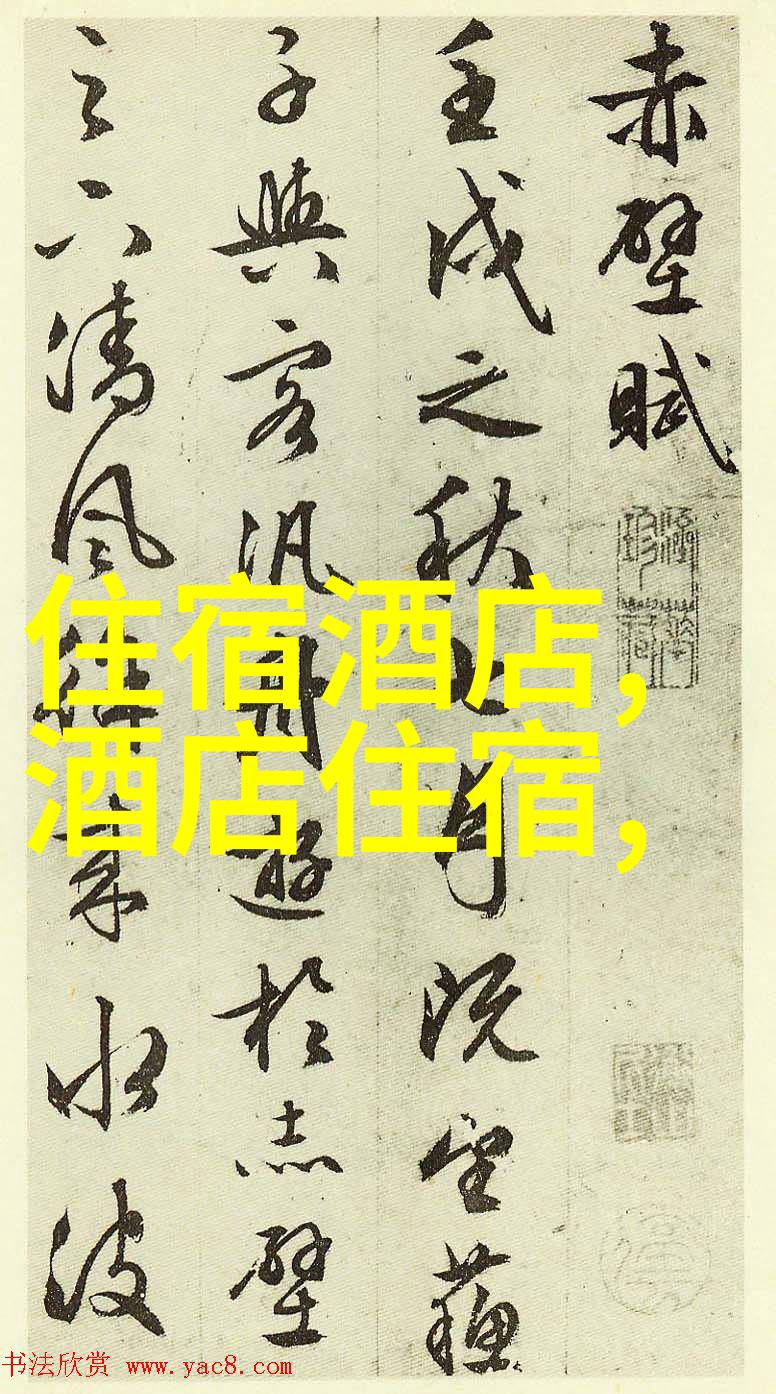 赤壁賦
壬戌之秋七月既望蘇
子與客汎舟遊於赤壁
之下清風徐來水波
住宿酒店,
酒店住宿,
书法欣赏 www.yac8.com